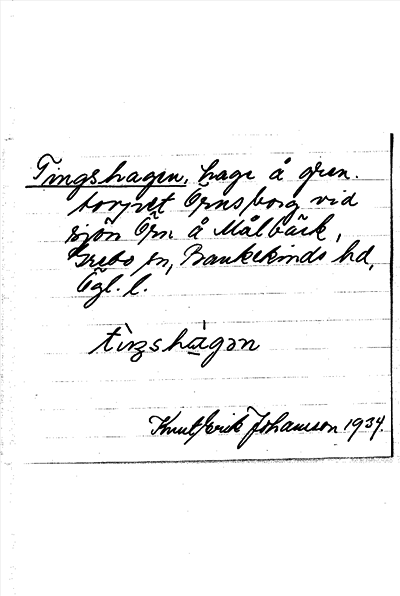 Tingshagen, hage å gren.
torpet Örnsborg vid
sjön Örn å Målbäck,
Grebo sn, Bankekinds hd,
Ögl. l.
tìŋshágən
Knut Erik Johansson 1934.